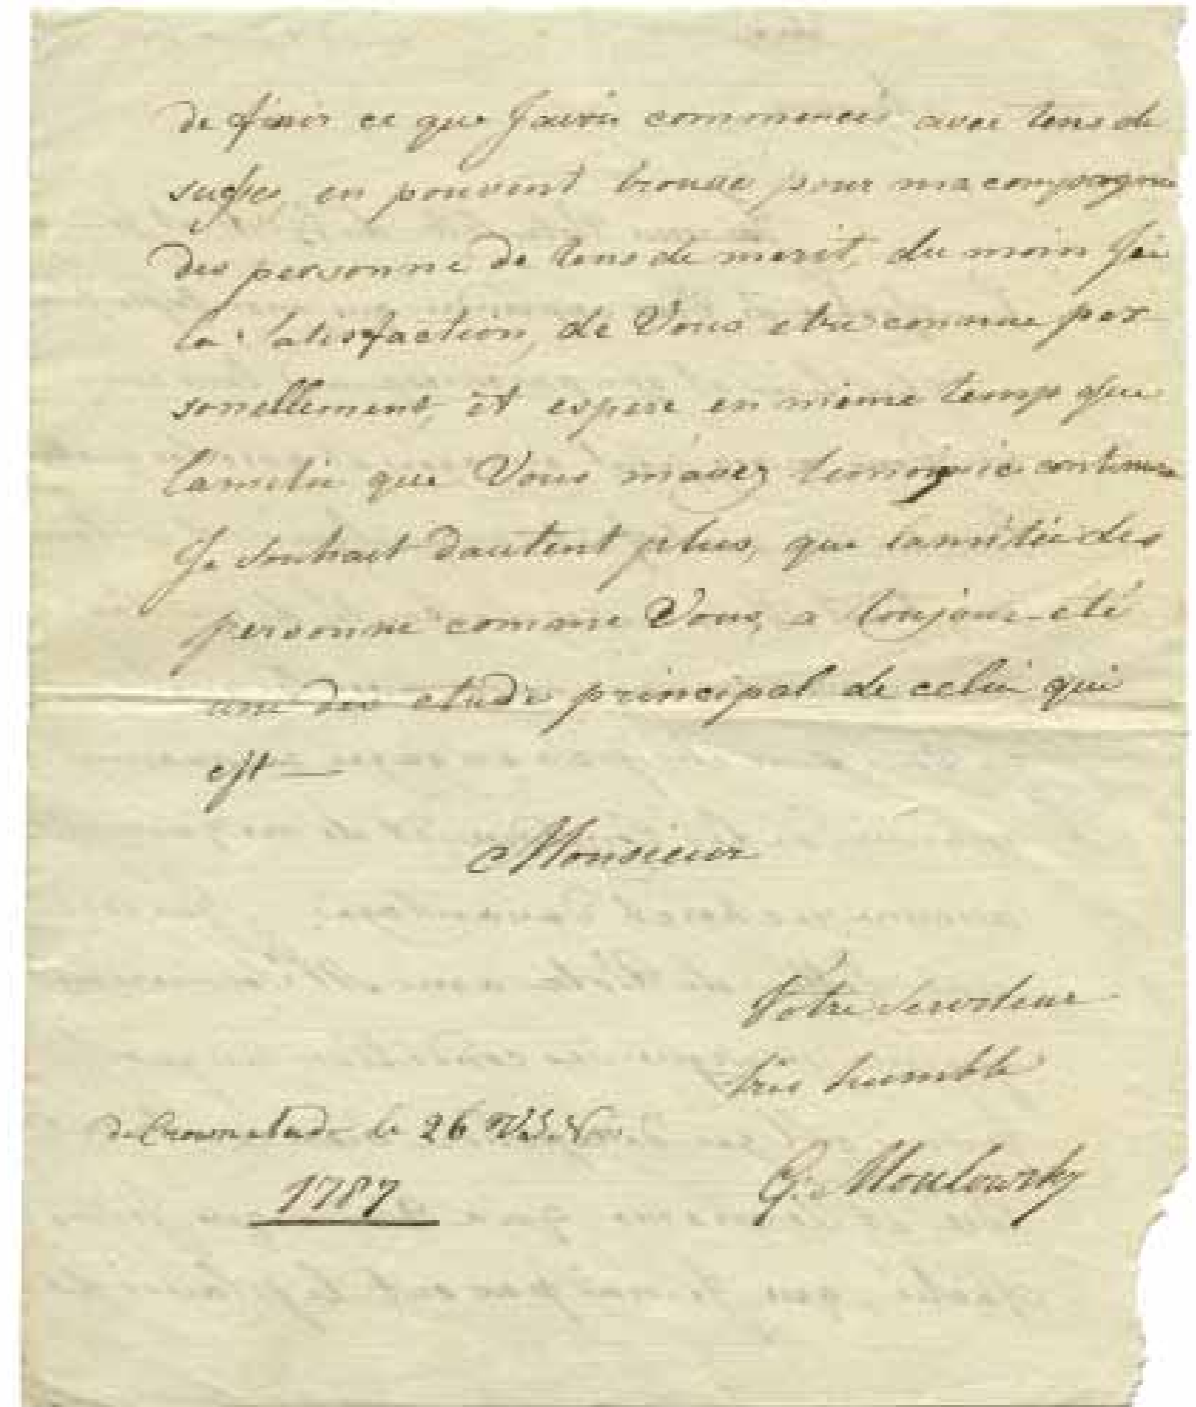 de finir ce que Jauris commencés avec tens de
sucsse, en pouvent trouvé pour ma compagnie
des personne de tens de merit, du moin J'ai
la satisfaction, de Vous etre connue per-
sonellement, et espere en même temp que
lamitié que Vous m'avez temoignié continue
Je souhait dautent plus, que lamitié des
personne comme Vous, a toujour été
une des etude principal de celui qui
est —
Monsieur
Votre serviteur
tres humble
de Crownstadt le 26
1787
G. Moulowsky